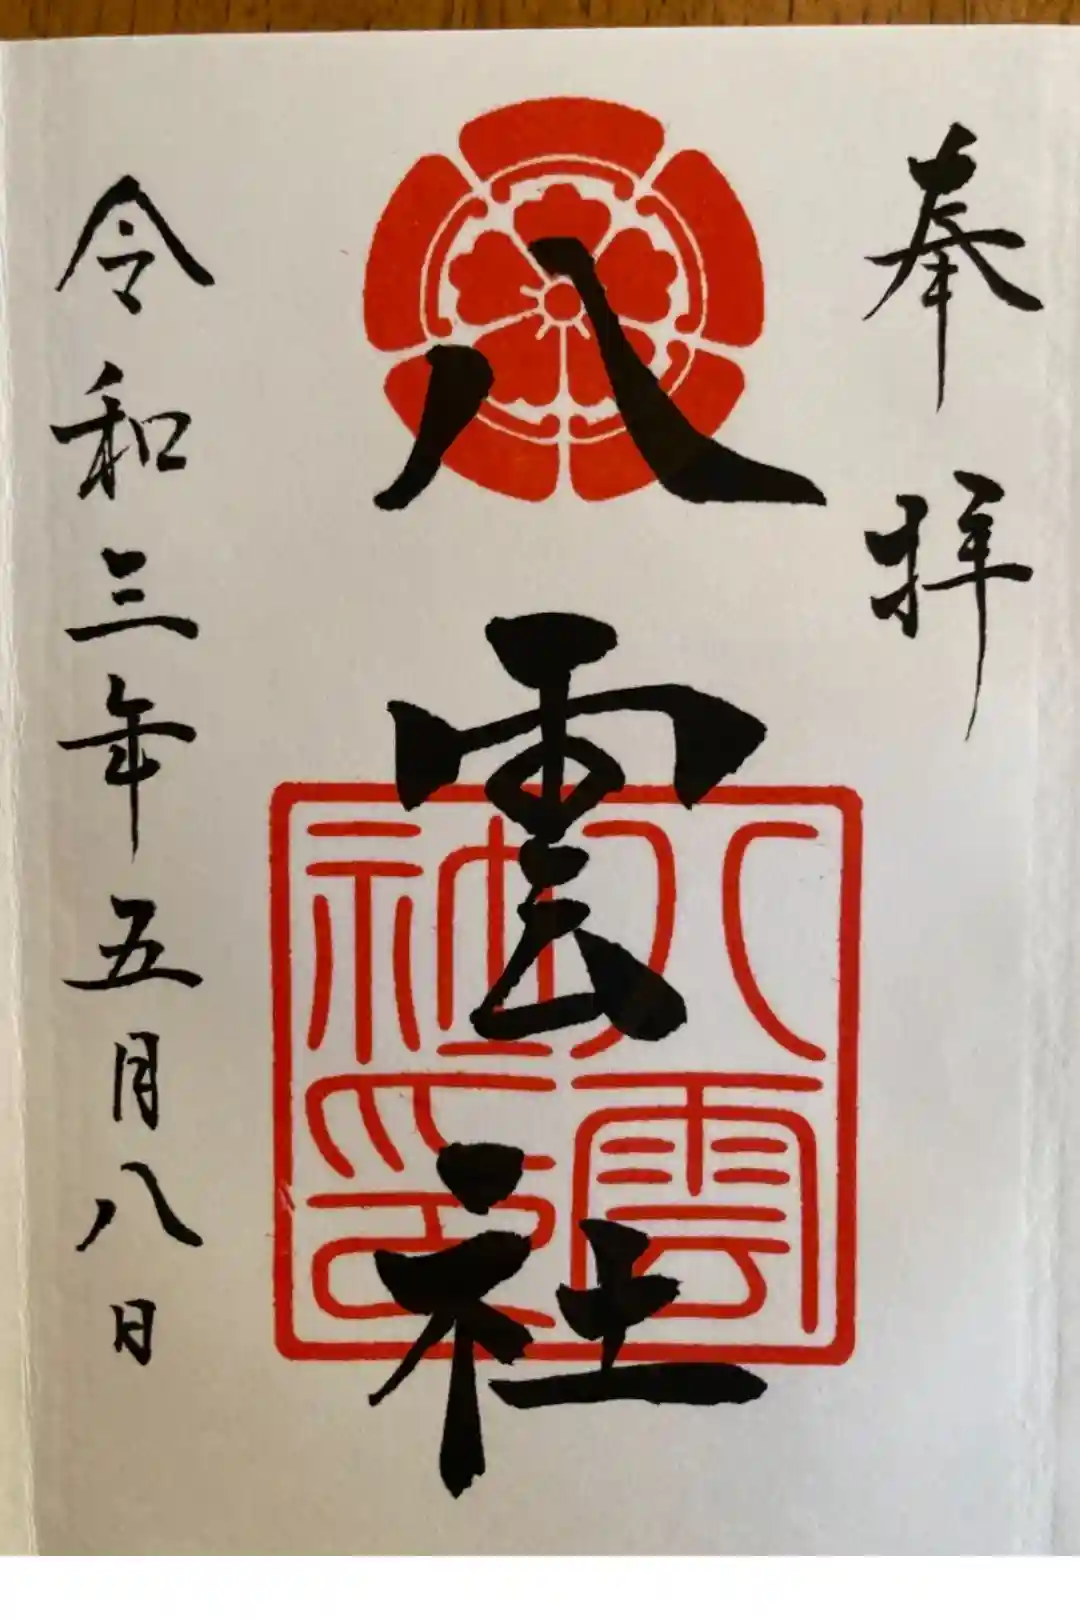 奉拝
八雲社
八雲
社印
令和三年五月八日